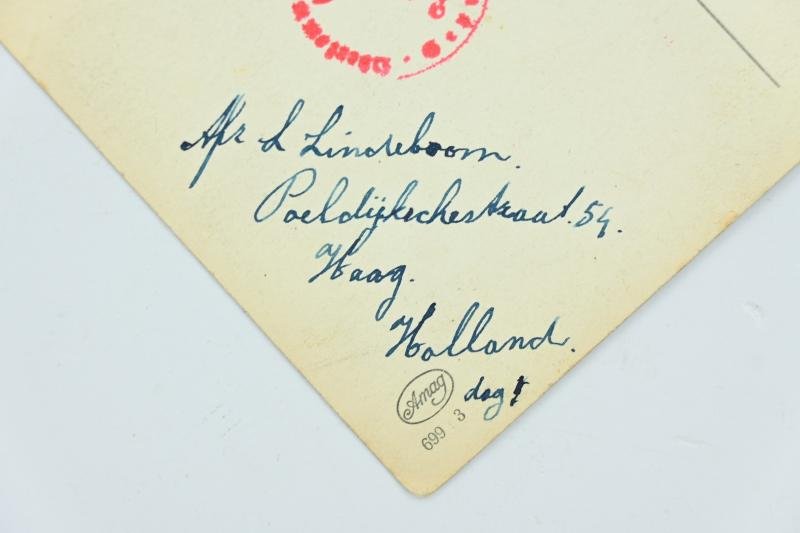 Afz L Lindeboom.
Poeldijkschestraat. 54.
Haag.
Holland.
Amag dag
699 3